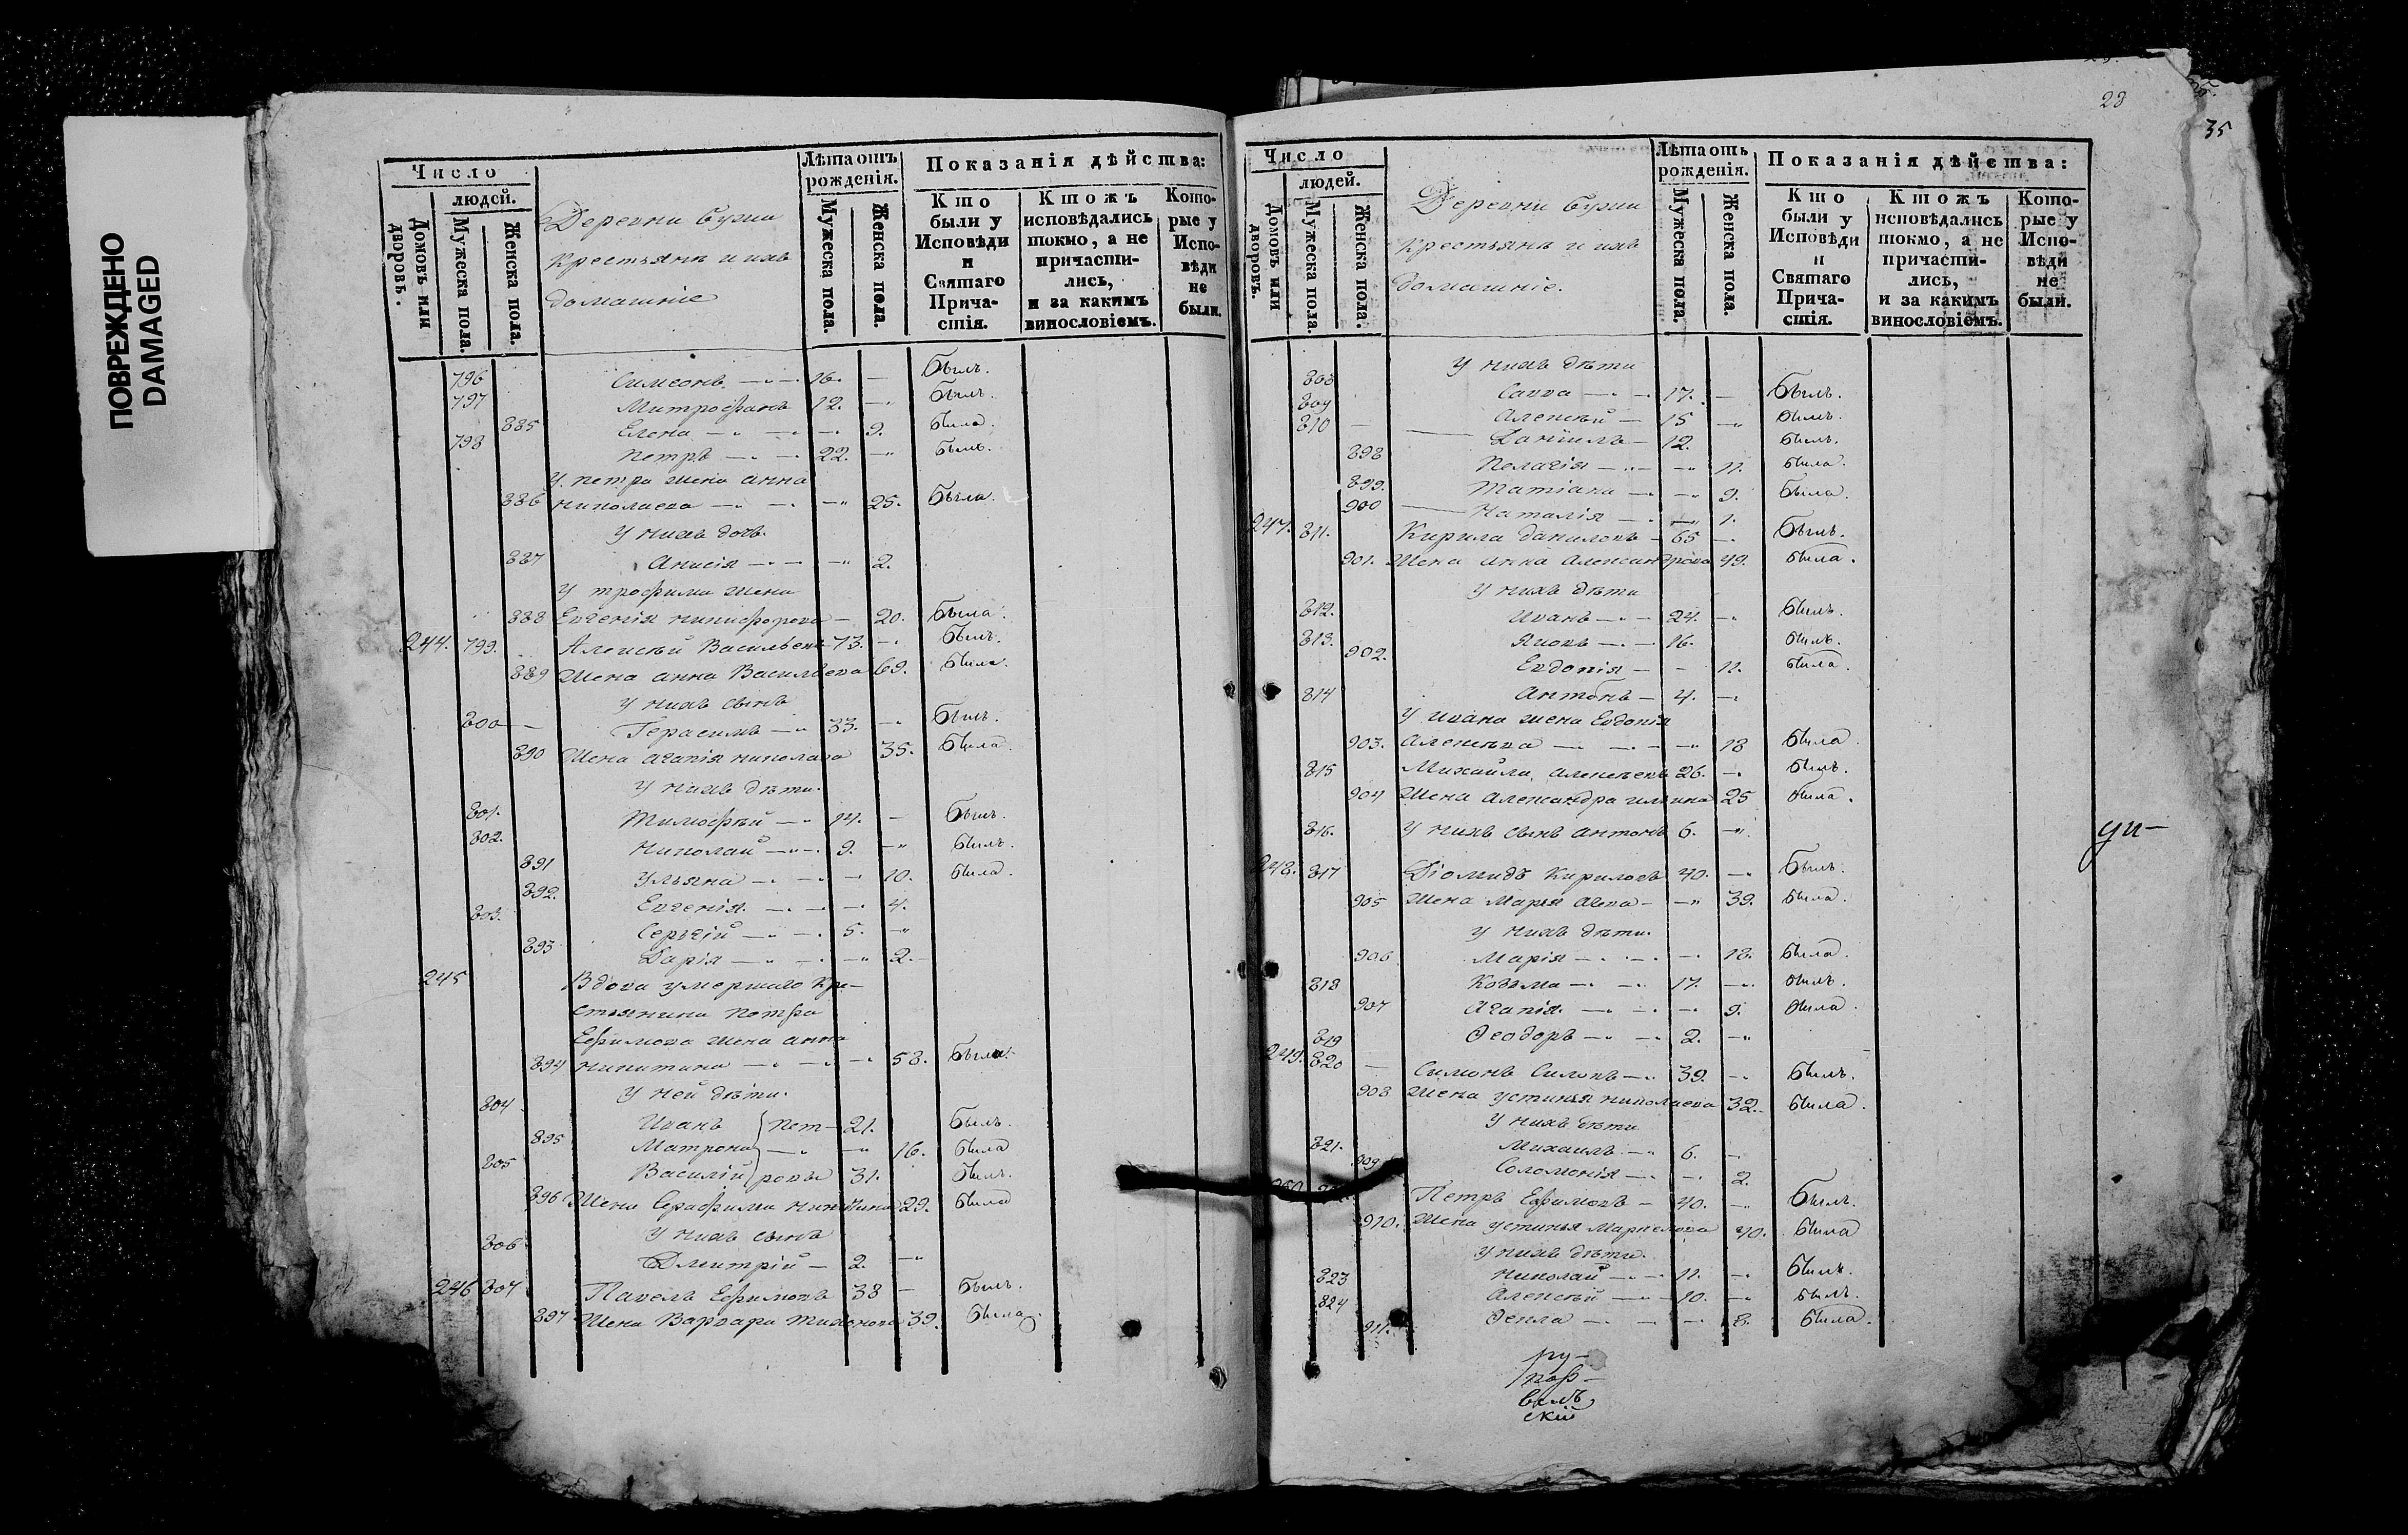 ПОВРЕЖДЕНО
DAMAGED
Число
людей.
Домовъ или дворовъ.
Мужеска пола.
Женска пола.
Деревни
крестьянъ и ихъ
домашніе
Лѣта отъ рожденія.
Мужеска пола.
Женска пола.
Показанія дѣйства:
Кто были у Исповѣди и Святаго Причастія.
Ктожъ исповѣдались токмо, а не причастились, и за какимъ винословіемъ.
Которые у Исповѣди не были.
796 Симеонъ 16. Былъ.
797 Митрофанъ 12. Былъ.
885 Елена 9. Была.
798 Петръ 22. Былъ.
У Петра жена Анна
886 Николаева 25. Была.
У нихъ дочь.
887 Анисія 2.
У Трофима жена
888 Евгенія Никифорова 20. Была.
244. 799. Алексѣй Васильевъ 73. Былъ.
889 Жена Анна Васильева 69. Была.
У нихъ сынъ
800 Герасимъ 33. Былъ.
890 Жена Агапія Николаева 35. Была.
У нихъ дѣти.
801. Тимофѣй 14. Былъ.
802. Николай 9. Былъ.
891 Ульяна 10. Была.
892. Евгенія 4.
803. Сергій 5.
893 Дарія 2.
245 Вдова умершаго кре-
стьянина Петра
Ефимова жена Анна
894 Никитина 58. Была.
У ней дѣти.
804 Иванъ Пет- 21. Былъ.
895 Матрона 16. Была
805 Василій ровы 31. Былъ.
896 Жена Серафима Никитина 29. Была
У нихъ сынъ
806 Дмитрій 2.
246 807 Павелъ Ефимовъ 38 Былъ.
897 Жена Варвара Тихонова 39. Была
28
35
Число
людей.
Домовъ или дворовъ.
Мужеска пола.
Женска пола.
Деревни
крестьянъ и ихъ
домашніе.
Лѣта отъ рожденія.
Мужеска пола.
Женска пола.
Показанія дѣйства:
Кто были у Исповѣди и Святаго Причастія.
Ктожъ исповѣдались токмо, а не причастились, и за какимъ винословіемъ.
Которые у Исповѣди не были.
У нихъ дѣти
808 Савва 17. Былъ.
809 Алексѣй 15 Былъ.
810 Даніилъ 12. Былъ.
898 Пелагія 11. Была.
899. Татіана 9. Была.
900 Наталія 1.
247. 811. Кирила Даниловъ 65 Былъ.
901. Жена Анна Александрова 49. Была.
У нихъ дѣти
812. Иванъ 24. Былъ.
813. Яковъ 16. Былъ.
902. Евдокія 11. Была.
814 Антонъ 4.
У Ивана жена Евдокія
903. Алексѣева 18 Была.
815 Михайла Алексѣевъ 26. Былъ.
904 Жена Александра Ильина 25 Была.
816. У нихъ сынъ Антонъ 6.
248. 817 Діомидъ Кириловъ 40. Былъ.
905 Жена Марія 39. Была.
У нихъ дѣти.
906 Марія 18. Была.
818 Козьма 17. Былъ.
907 Агапія. 9. Была.
819 Ѳеодоръ 2.
249. 820 Симонъ Силовъ 39. Былъ.
908 Жена Устинья Николаева 32. Была.
У нихъ дѣти
821. Михаилъ 6.
909 Соломонія 2.
250 Петръ Ефимовъ 40. Былъ.
910. Жена Устинья Маркелова 40. Была
У нихъ дѣти.
823 Николай 11. Былъ.
824 Алексѣй 10. Былъ.
911. Ѳекла 8. Была.